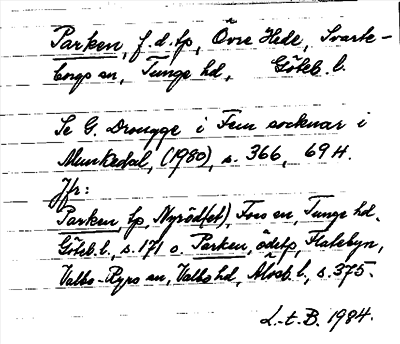 Parken, f.d. tp, Övre Hede, Svarte-
borgs sn, Tunge hd, Göteb. l.
Se G. Drougge i Fem socknar i
Munkedal, (1980), s. 366, 69 H.
Jfr:
Parken, tp, Nyröd(et), Foss sn, Tunge hd,
Göteb. l., s. 171 o. Parken, ödetp, Flatebyn,
Valbo-Ryrs sn, Valbo hd, Älvsb. l., s. 375.
L-t-B. 1984.